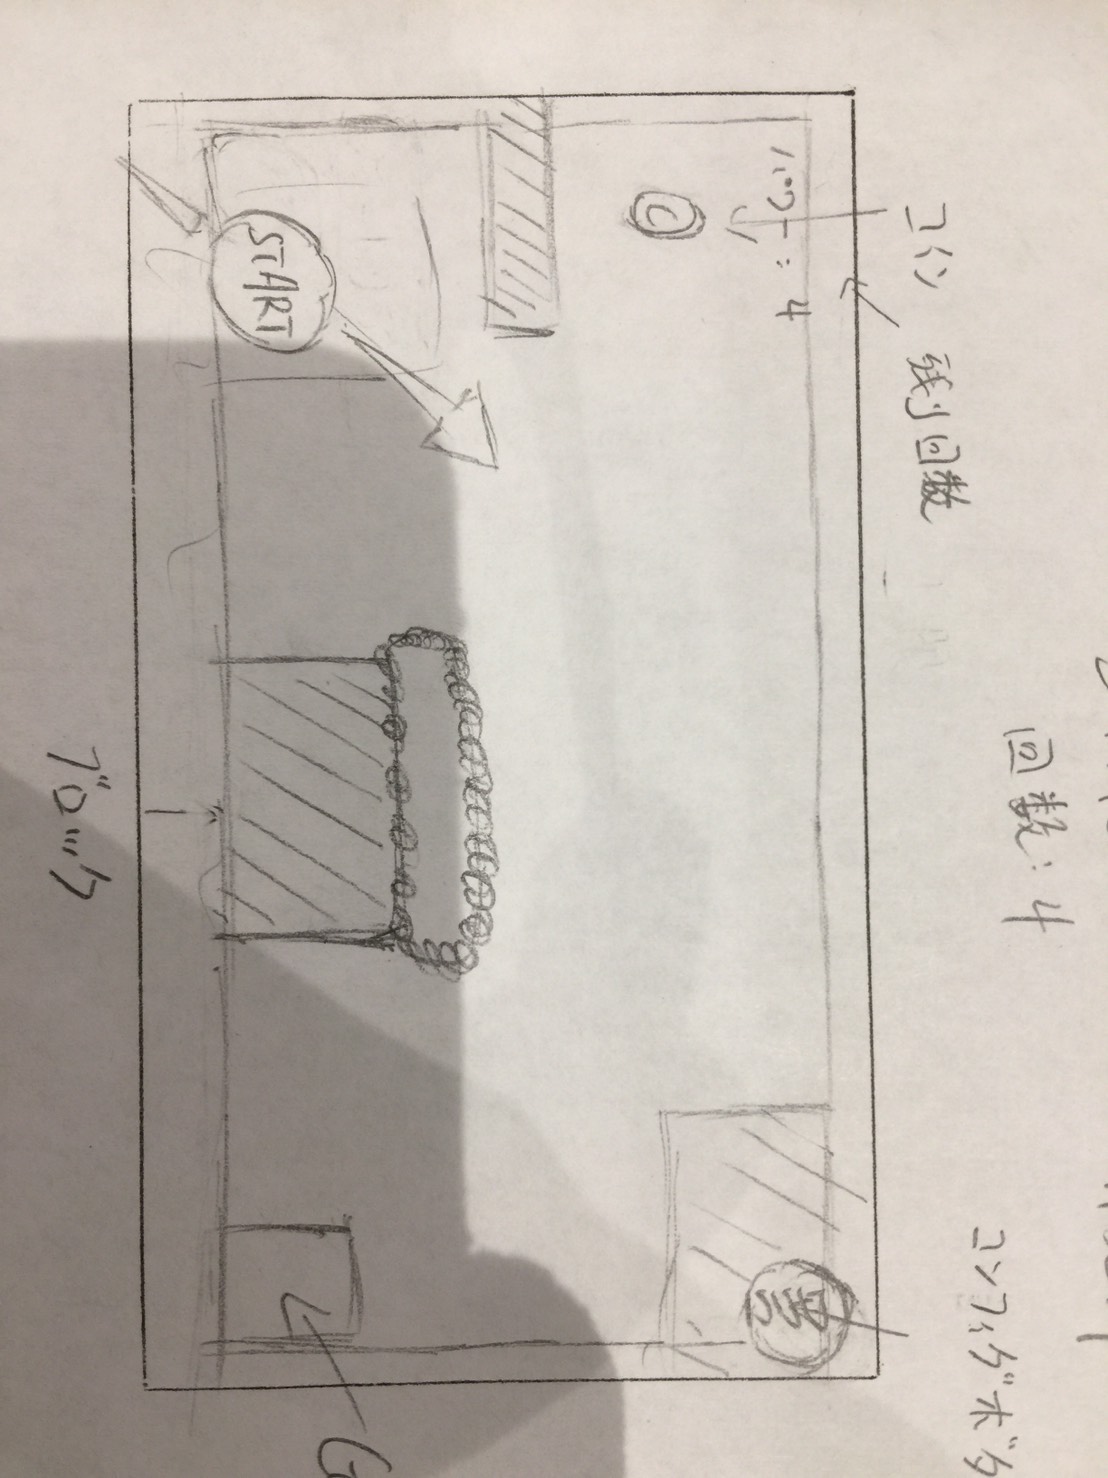 回数: 4
コンフィグボタ
コイン
残り回数
パワー: 4
C
START
G
ブロック